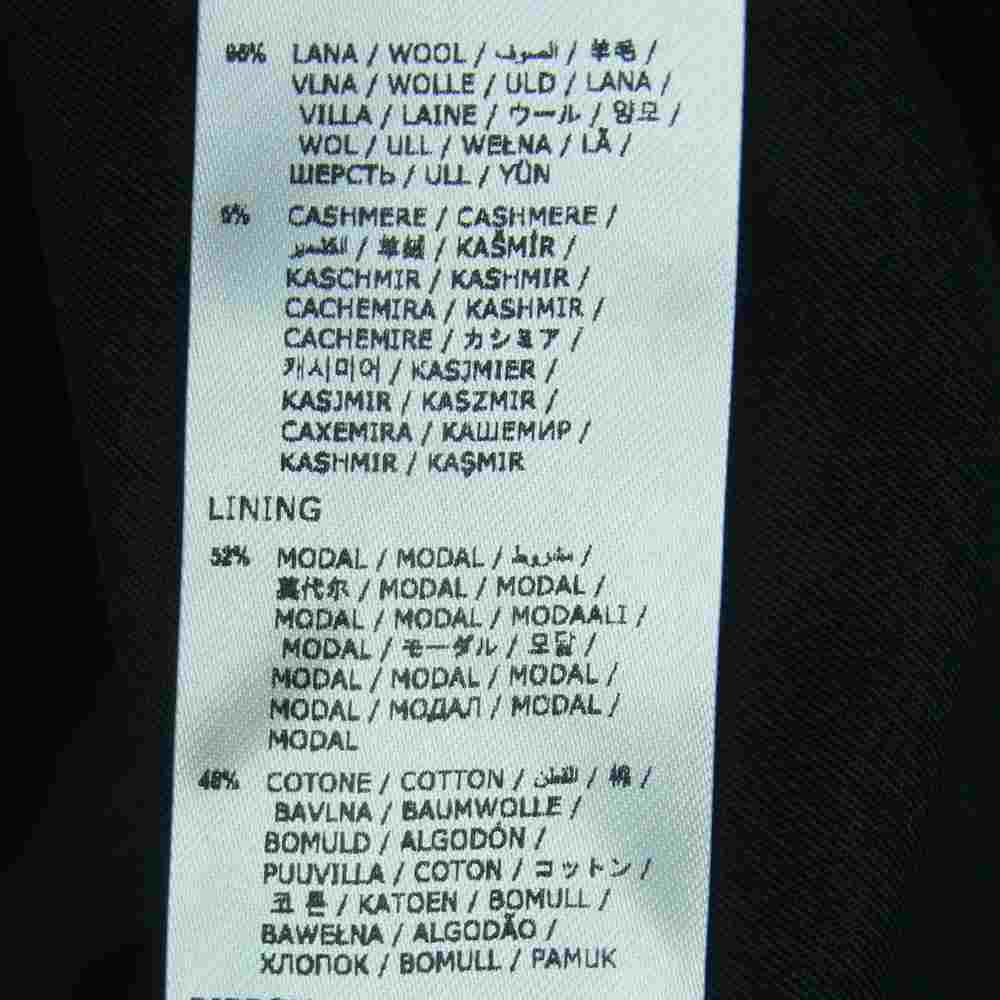 95% LANA / WOOL / الصوف / 羊毛 /
VLNA / WOLLE / ULD / LANA /
VILLA / LAINE / ウール / 양모 /
WOL / ULL / WEŁNA / LÃ /
ШЕРСТЬ / ULL / YÜN
5% CASHMERE / CASHMERE /
الكشمير / 羊绒 / KAŠMÍR /
KASCHMIR / KASHMIR /
CACHEMIRA / KASHMIR /
CACHEMIRE / カシミア /
캐시미어 / KASJMIER /
KASJMIR / KASZMIR /
CAXEMIRA / КАШЕМИР /
KASHMIR / KAŞMIR
LINING
52% MODAL / MODAL / مشروط /
莫代尔 / MODAL / MODAL /
MODAL / MODAL / MODAALI /
MODAL / モーダル / 모달 /
MODAL / MODAL / MODAL /
MODAL / МОДАЛ / MODAL /
MODAL
48% COTONE / COTTON / القطن / 棉 /
BAVLNA / BAUMWOLLE /
BOMULD / ALGODÓN /
PUUVILLA / COTON / コットン /
코튼 / KATOEN / BOMULL /
BAWEŁNA / ALGODÃO /
ХЛОПОК / BOMULL / PAMUK